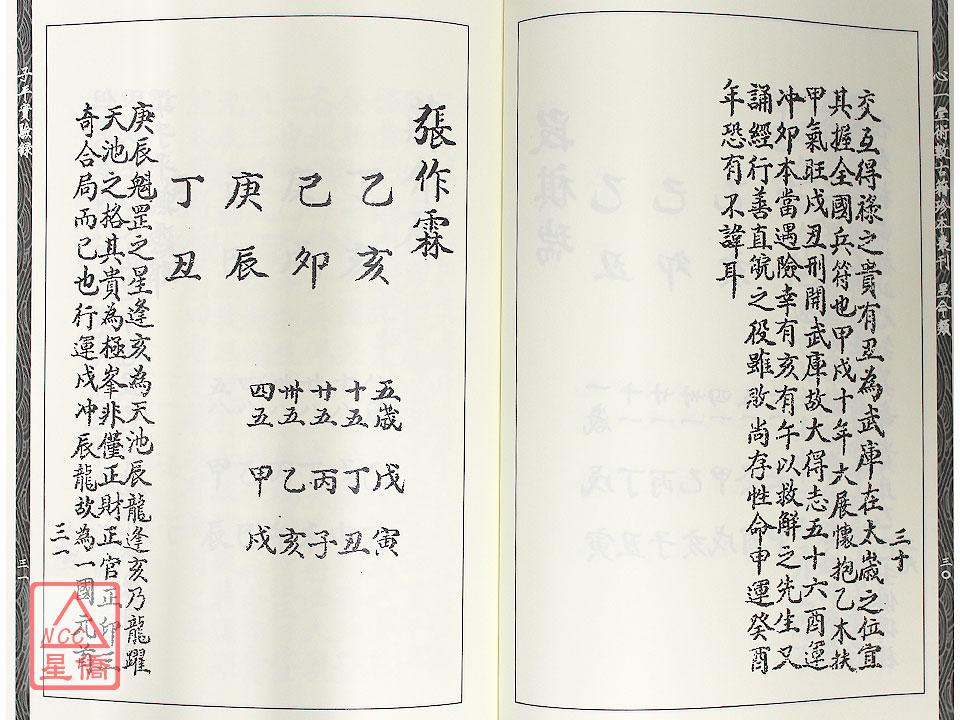 交互得祿之貴有丑為武庫在太歲之位宜
其握全國兵符也甲戌十年大展懷抱乙木扶
甲氣旺戌丑刑開武庫故大得志五十六酉運
冲卯本當遇險幸有亥有午以救解之先生又
誦經行善直皖之役雖敗尚存性命申運癸酉
年恐有不諱耳
三十
三〇
張作霖
乙亥
己卯
庚辰
丁丑
五歲戊寅
十五丁丑
廿五丙子
卅五乙亥
四五甲戌
庚辰魁罡之星逢亥為天池辰龍逢亥乃龍躍
天池之格其貴為極峯非僅正財正官正印三
奇合局而已也行運戌冲辰龍故為一國元首
三一
三一
NCC
星僑